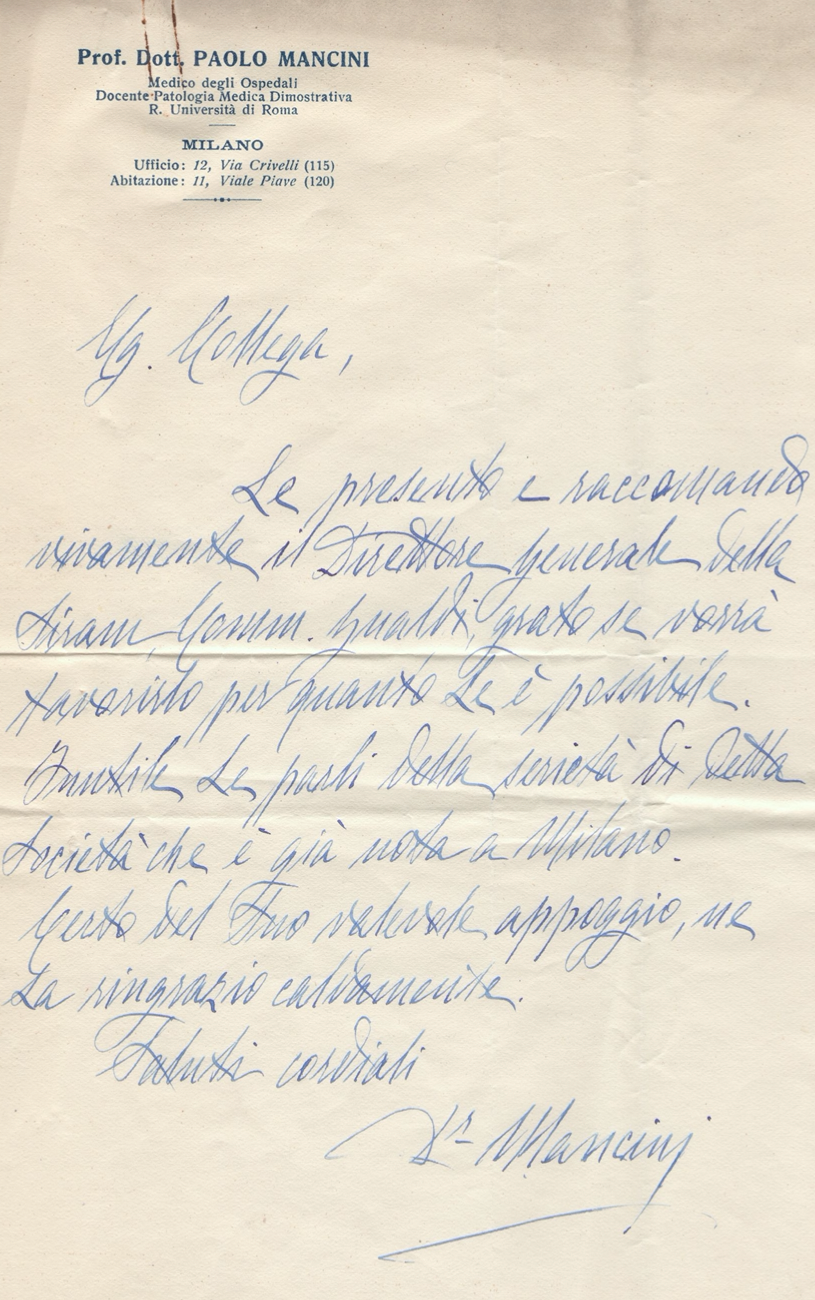 Prof. Dott. PAOLO MANCINI
Medico degli Ospedali
Docente Patologia Medica Dimostrativa
R. Università di Roma
MILANO
Ufficio: 12, Via Crivelli (115)
Abitazione: 11, Viale Piave (120)
Eg. Collega,
Le presento e raccomando
vivamente il Direttore Generale della
Siram, Comm. Gualdi, grato se vorrà
favorirlo per quanto Le è possibile.
Inutile Le parli della serietà di detta
Società che è già nota a Milano.
Certo del Suo valevole appoggio, ne
La ringrazio caldamente.
Saluti cordiali
Dr Mancini